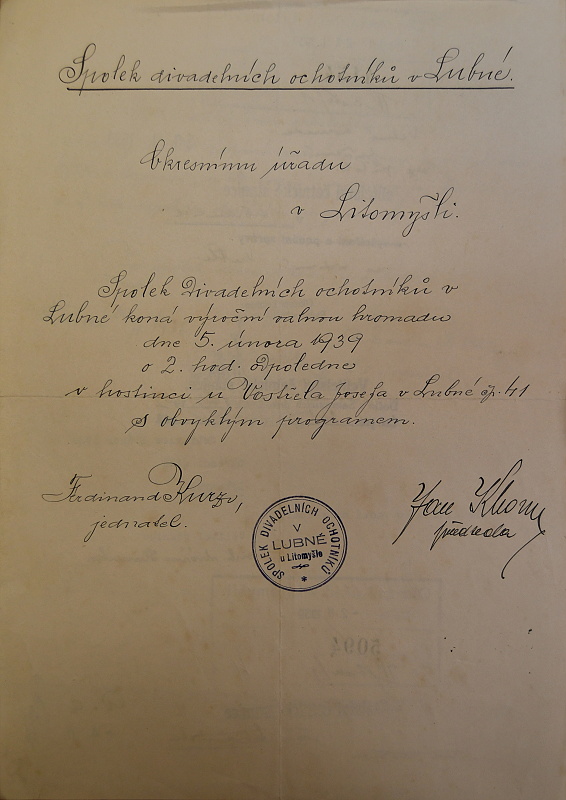 Spolek divadelních ochotníků v Lubné.
Okresnímu úřadu
v Litomyšli.
Spolek Divadelních ochotníků v
Lubné koná výroční valnou hromadu
dne 5. února 1939
o 2. hod. odpoledne
v hostinci u Vostřela Josefa v Lubné čp. 41
s obvyklým programem.
Ferdinand Kurz,
jednatel.
Jan
předseda
SPOLEK DIVADELNÍCH OCHOTNÍKŮ
V
LUBNÉ
u Litomyšle
*
5094